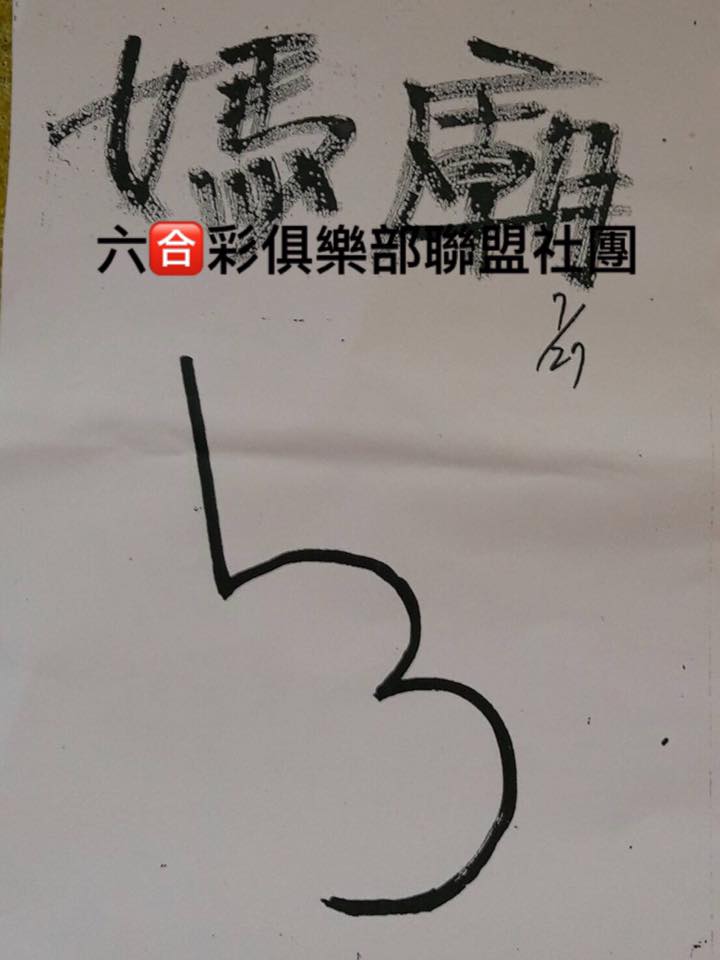 媽廟
六🈴彩俱樂部聯盟社團
7/27